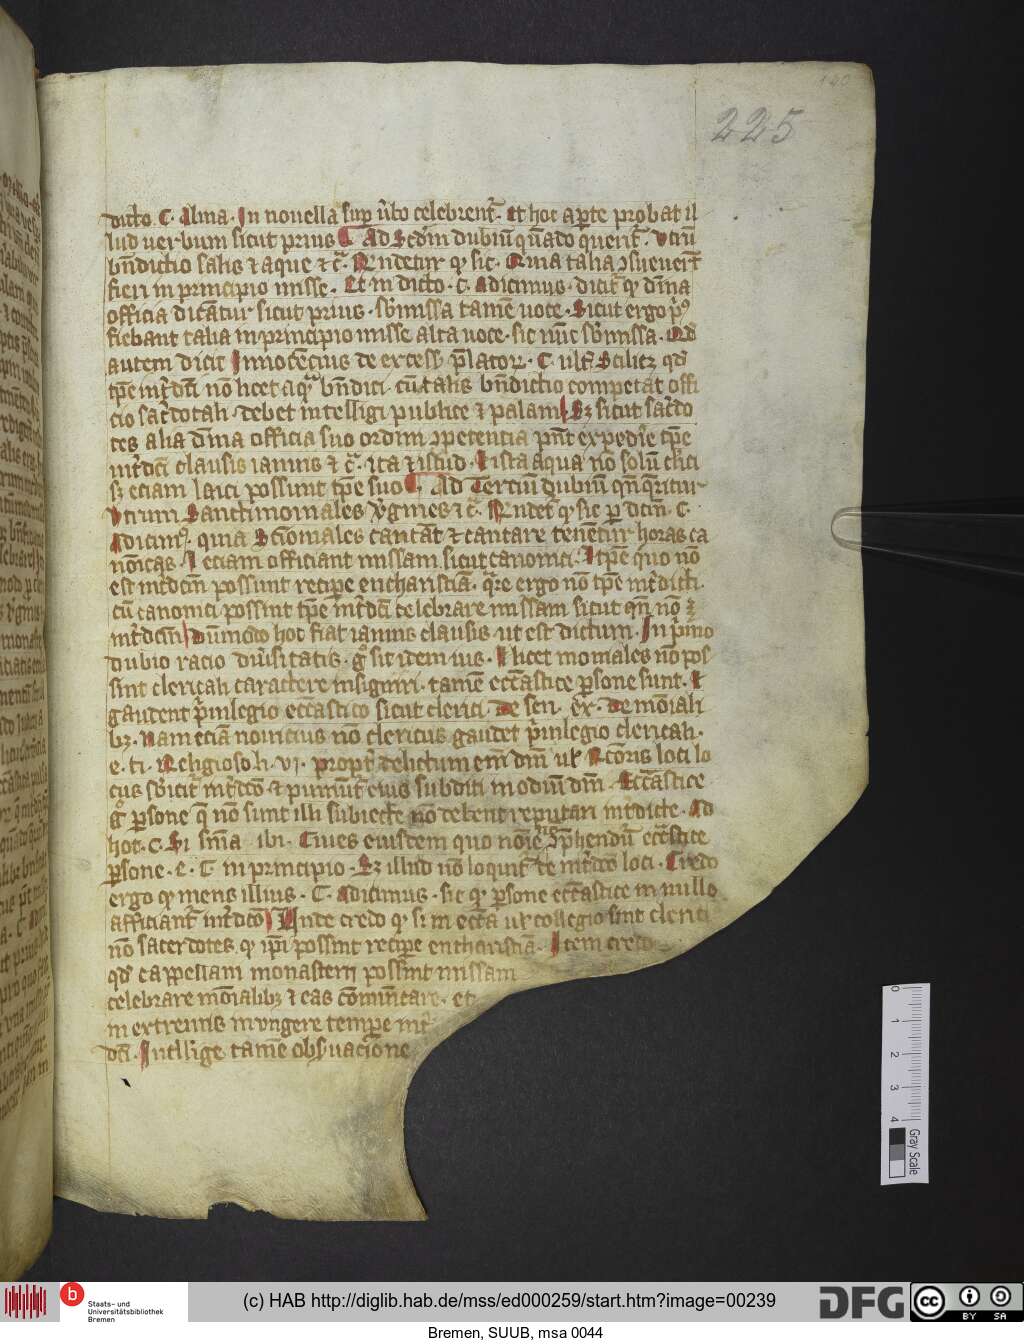 225
dicto. C. Alma. In novella sup v̄bo celebrent̄. Et hoc aperte probat il
lud verbum sicut prius Ad Sc̄dm dubiū qn̄ado querit̄. Vtrū
bn̄dictio salis ⁊ aque ⁊ c̄. Rn̄detur qꝫ sic. Quia talia ɔsueuer̄t
fieri in principio misse. Et in dicto. c. Adicimus. dicit̄ qꝫ diīna
officia dicant̄ur sicut prius. sb̄missa tamē uoce. Sicut ergo pͥꝰ
fiebant talia in principio misse alta uoce. sic nūc sb̄missa. Qd̄
autem dicit Innocēcius de excess p̄latoꝝ. C. ult̄. Scilicꝫ qd̄
tp̄e int̄dcī nō licet aqͣ bn̄dici. cū talis bn̄dictio competat offi
cio sac̄dotali. debet intelligi publice ⁊ palam Sꝫ sicut sac̄do
tes alia diīna officia suo ordini ɔpetencia pn̄t expedire tp̄e
int̄dicti clausis ianuis ⁊ c̄. ita ⁊ istud. Et ista aqua nō solū cl̄ici
sꝫ eciam laici possunt tp̄e suo Ad Tercium dubiū qn̄ queritur
Vtrum Sanctimoniales v̄gines ⁊ c̄. Rn̄det̄ qꝫ sic ꝑ dcm̄. C.
Adicimꝰ. quia Sc̄imoniales cantāt ⁊ cantare tenētur horas ca
nōicas. Et eciam officiant missam sicut canonici. Et tp̄e quo nō
est int̄dcm̄ possunt recipe eucharistiā. qͣre ergo nō tp̄e int̄dicti.
cū canonici possint tp̄e int̄dcī celebrare missam sicut qn̄ nō ē
int̄dcm̄ Dūmodo hoc fiat ianuis clausis. ut est dictum. In pͥmo
dubio racio diūsitatis. gͦ sit idem ius. Et licet moniales nō pos
sint clericali caractere insigniri. tamē eccl̄astice ꝑsone sunt. Et
gaudent pͥuilegio eccl̄astico sicut clerici. De sen. ex. De moniali
bꝫ. Nam eciā nouicius nō clericus gaudet pͥuilegio clericali.
e. ti. Religioso li. vi. propt̄ delictum em̄ dn̄i ul̄ Rectoris loci lo
cus sb̄icit̄ int̄dco ⁊ puniūt̄ eius subditi in odiū dn̄i. Eccl̄astice
gͦ ꝑsone q̄ nō sunt illi subiecte nō debent reputari int̄dicte. Ad
hoc. C. Si sn̄ia ibi. Ciues eiusdem quo noīe ɔp̄hendūt̄ eccl̄astice
ꝑsone. e. C in principio. Sꝫ illud nō loquit̄ de int̄dco loci. Credo
ergo qꝫ mens illius. C. Adicimus. sic qꝫ ꝑsone eccl̄astice in nullo
afficiant̄ int̄dco Vnde credo qꝫ si in eccl̄a ul̄ collegio sint clerici
nō sacerdotes. qꝫ ip̄i possint recipe eucharistiā. Item credo
qd̄ cappellani monasterii possint missam
celebrare moīalibꝫ ⁊ eas cōmūicare. et
in extremis inungere tempore int̄
dcī. Intellige tamē obs̄uacione
(c) HAB http://diglib.hab.de/mss/ed000259/start.htm?image=00239
Staats- und
Universitätsbibliothek
Bremen
DFG
Bremen, SUUB, msa 0044
0 1 2 3 4
Gray Scale